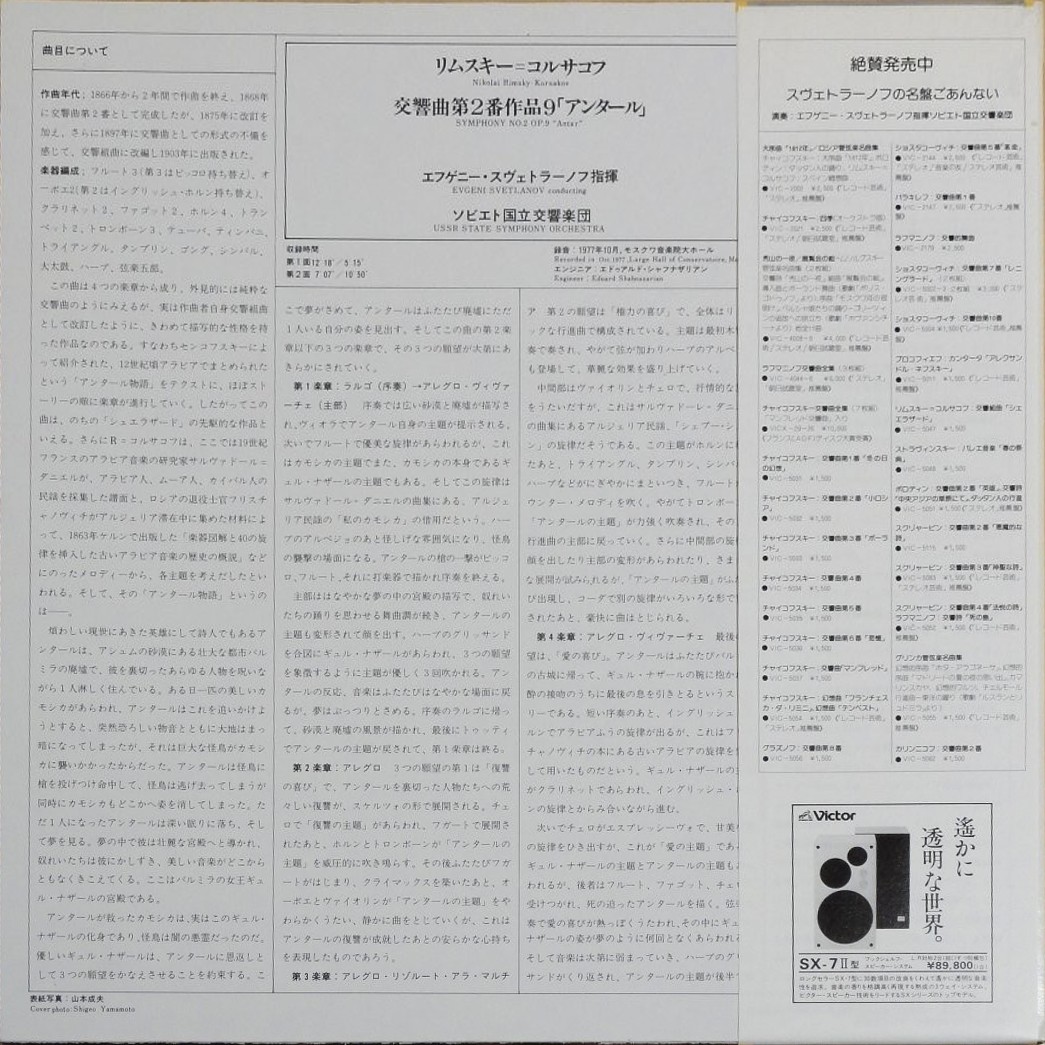 曲目について
作曲年代；1866年から2年間で作曲を終え、1868年
に交響曲第2番として完成したが、1875年に改訂を
加え、さらに1897年に交響曲としての形式の不備を
感じて、交響組曲に改編し1903年に出版された。
楽器編成；フルート3(第3はピッコロ持ち替え)、オ
ーボエ2(第2はイングリッシュ・ホルン持ち替え)、
クラリネット2、ファゴット2、ホルン4、トラン
ペット2、トロンボーン3、テューバ、ティンパニ、
トライアングル、タンブリン、ゴング、シンバル、
大太鼓、ハープ、弦楽五部。
この曲は4つの楽章から成り、外見的には純粋な
交響曲のようにみえるが、実は作曲者自身交響組曲
として改訂したように、きわめて描写的な性格を持
った作品なのである。すなわちセンコフスキーによ
って紹介された、12世紀頃アラビアでまとめられた
という「アンタール物語」をテクストに、ほぼスト
ーリーの順に楽章が進行していく。したがってこの
曲は、のちの「シェエラザード」の先駆的な作品と
いえる。さらにR＝コルサコフは、ここでは19世紀
フランスのアラビア音楽の研究家サルヴァドール＝
ダニエルが、アラビア人、ムーア人、カイバル人の
民謡を採集した譜面と、ロシアの退役士官フリスチ
ャノヴィチがアルジェリア滞在中に集めた材料によ
って、1863年ケルンで出版した「楽器図解と40の旋
律を挿入した古いアラビア音楽の歴史の概説」など
にのったメロディーから、各主題を考えだしたとい
われる。そして、その「アンタール物語」というの
は――。
煩わしい現世にあきた英雄にして詩人でもあるア
ンタールは、アシュムの砂漠にある壮大な都市パル
ミラの廃墟で、彼を裏切ったあらゆる人物を呪いな
がら1人淋しく住んでいる。ある日一匹の美しいカ
モシカがあらわれ、アンタールはこれを追いかけよ
うとすると、突然恐ろしい物音とともに大地はまっ
暗になってしまったが、それは巨大な怪鳥がカモシ
カに襲いかかったからだった。アンタールは怪鳥に
槍を投げつけ命中して、怪鳥は逃げ去ってしまうが
同時にカモシカもどこかへ姿を消してしまった。た
だ1人になったアンタールは深い眠りに落ち、そし
て夢を見る。夢の中で彼は壮麗な宮殿へと導かれ、
奴れいたちは彼にかしずき、美しい音楽がどこから
ともなくきこえてくる。ここはパルミラの女王ギュ
ル・ナザールの宮殿である。
アンタールが救ったカモシカは、実はこのギュル・
ナザールの化身であり、怪鳥は闇の悪霊だったのだ。
優しいギュル・ナザールは、アンタールに恩返しと
して3つの願望をかなえさせることを約束する。こ
表紙写真：山本成夫
Cover photo: Shigeo Yamamoto
リムスキー＝コルサコフ
Nikolai Rimsky-Korsakov
交響曲第2番作品9「アンタール」
SYMPHONY NO.2 OP.9 "Antar"
エフゲニー・スヴェトラーノフ指揮
EVGENI SVETLANOV conducting
ソビエト国立交響楽団
USSR STATE SYMPHONY ORCHESTRA
収録時間
第1面 12′18″／5′15″
第2面 7′07″／10′50″
録音：1977年10月，モスクワ音楽院大ホール
Recorded in Oct.1977, Large Hall of Conservatoire, Mo
エンジニア：エドゥアルド・シャフナザリアン
Engineer: Eduard Shahnazarian
こで夢がさめて、アンタールはふたたび廃墟にただ
1人いる自分の姿を見出す。そしてこの曲の第2楽
章以下の3つの楽章で、その3つの願望が次第にあ
きらかにされていく。
第1楽章：ラルゴ（序奏）→アレグロ・ヴィヴァ
ーチェ（主部） 序奏では広い砂漠と廃墟が描写さ
れ、ヴィオラでアンタール自身の主題が提示される。
次いでフルートで優美な旋律があらわれるが、これ
はカモシカの主題でまた、カモシカの本身であるギ
ュル・ナザールの主題でもある。そしてこの旋律は
サルヴァドール・ダニエルの曲集にある、アルジェ
リア民謡の「私のカモシカ」の借用だという。ハー
プのアルペジョのあと怪しげな雰囲気になり、怪鳥
の襲撃の場面になる。アンタールの槍の一撃がピッコ
ロ、フルート、それに打楽器で描かれ序奏を終える。
主部ははなやかな夢の中の宮殿の描写で、奴れい
たちの踊りを思わせる舞曲調が続き、アンタールの
主題も変形されて顔を出す。ハープのグリッサンド
を合図にギュル・ナザールがあらわれ、3つの願望
を象徴するように主題が優しく3回吹かれる。アン
タールの反応、音楽はふたたびはなやかな場面に戻
るが、夢はぷっつりとさめる。序奏のラルゴに帰っ
て、砂漠と廃墟の風景が描かれ、最後にトゥッティ
でアンタールの主題が戻されて、第1楽章は終る。
第2楽章：アレグロ 3つの願望の第1は「復讐
の喜び」で、アンタールを裏切った人物たちへの荒
々しい復讐が、スケルツォの形で展開される。チェ
ロで「復讐の主題」があらわれ、フガートで展開さ
れたあと、ホルンとトロンボーンが「アンタールの
主題」を威圧的に吹き鳴らす。その後ふたたびフガ
ートがはじまり、クライマックスを築いたあと、オ
ーボエとヴァイオリンが「アンタールの主題」をや
わらかくうたい、静かに曲をとじていくが、これは
アンタールの復讐が成就したあとの安らかな心持ち
を表現したものであろう。
第3楽章：アレグロ・リゾルート・アラ・マルチ
ア 第2の願望は「権力の喜び」で、全体はリ
ックな行進曲で構成されている。主題は最初木
奏で奏され、やがて弦が加わりハープのアルペ
も登場して、華麗な効果を盛り上げていく。
中間部はヴァイオリンとチェロで、行情的な
をうたいだすが、これはサルヴァドーレ・ダニ
の曲集にあるアルジェリア民謡、「シェアー・シ
ン」の旋律だそうである。この主題がホルンに
たあと、トライアングル、タンブリン、シンバ
ハープなどがにぎやかにまといつき、フルート
ウンター・メロディを吹く。やがてトロンボー
「アンタールの主題」が力強く吹奏され、その
行進曲の主部に戻っていく。さらに中間部の旋
顔を出したり主部の変形があらわれたり、さま
な展開が試みられるが、「アンタールの主題」がふ
び出現し、コーダで別の旋律がいろいろな形で
されたあと、豪快に曲はとじられる。
第4楽章：アレグロ・ヴィヴァーチェ 最後
望は、「愛の喜び」。アンタールはふたたびパル
の古城に帰って、ギュル・ナザールの腕に抱か
酔の接吻のうちに最後の息を引きとるというス
リーである。短い序奏のあと、イングリッシュ
ルンでアラビアふうの旋律が出るが、これはフ
チャノヴィチの本にある古いアラビアの旋律を
して用いたものだという。ギュル・ナザールの
がクラリネットであらわれ、イングリッシュ・
ンの旋律とからみ合いながら進む。
次いでチェロがエスプレッシーヴォで、甘美
の旋律をひき出すが、これが「愛の主題」であ
ギュル・ナザールの主題とアンタールの主題も
われるが、後者はフルート、ファゴット、チェ
受けつがれ、死の迫ったアンタールを描く。弦
奏で愛の喜びが熱っぽくうたわれ、その中にギュ
ナザールの姿が夢のように何回となくあらわれ
そして音楽は次第に弱まっていき、ハープのグ
サンドがくり返され、アンタールの主題が後半
絶賛発売中
スヴェトラーノフの名盤ごあんない
演奏：エフゲニー・スヴェトラーノフ指揮ソビエト国立交響楽団
大序曲「1812年」／ロシア管弦楽名曲集
チャイコフスキー：四季(オーケストラ版)
ラフマニノフ交響曲全集（3枚組）
チャイコフスキー交響曲全集（7枚組）
チャイコフスキー：交響曲第1番「冬の日
の幻想」
チャイコフスキー：交響曲第2番「小ロシ
ア」
チャイコフスキー：交響曲第3番「ポーラ
ンド」
チャイコフスキー：交響曲第4番
チャイコフスキー：交響曲第5番
チャイコフスキー：交響曲第6番「悲愴」
チャイコフスキー：交響曲「マンフレッド」
チャイコフスキー：幻想曲「フランチェス
カ・ダ・リミニ」幻想曲「テンペスト」
グラズノフ：交響曲第8番
ショスタコーヴィチ：交響曲第5番「革命」
バラキレフ：交響曲第1番
ラフマニノフ：交響的舞曲
ショスタコーヴィチ：交響曲第7番「レニ
ングラード」（2枚組）
ショスタコーヴィチ：交響曲第10番
プロコフィエフ：カンタータ「アレクサン
ドル・ネフスキー」
リムスキー＝コルサコフ：交響組曲「シェ
エラザード」
ストラヴィンスキー：バレエ音楽「春の祭
典」
ボロディン：交響曲第2番「英雄」交響詩
「中央アジアの草原にて」、ダッタン人の行進
スクリャービン：交響曲第2番「悪魔的な
詩」
スクリャービン：交響曲第3番「神聖な詩」
スクリャービン：交響曲第4番「法悦の詩」
ラフマニノフ：交響詩「死の島」
グリンカ管弦楽名曲集
カリンニコフ：交響曲第2番
Victor
遙かに
透明な世界。
SX-7II型
ブックシェルフ・
スピーカー・システム
¥89,800
ロングセラーSX-7型に30数項目の改良をくわえて遙かに透明な音楽
性を追求。音楽の香りを格調高く再現する熟成の3ウェイ・システム。
ビクター・スピーカー技術をリードするSXシリーズのトップモデル。